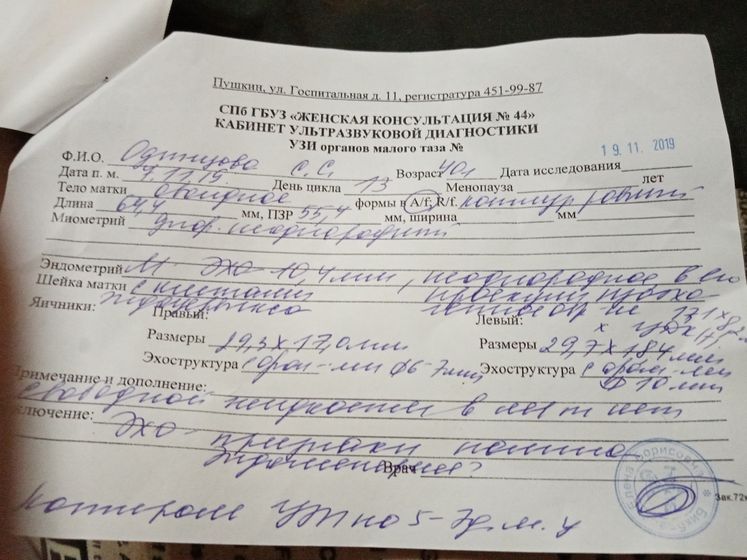 Пушкин, ул. Госпитальная д. 11, регистратура 451-99-87
СПб ГБУЗ «ЖЕНСКАЯ КОНСУЛЬТАЦИЯ № 44»
КАБИНЕТ УЛЬТРАЗВУКОВОЙ ДИАГНОСТИКИ
УЗИ органов малого таза №
19.11.2019
Ф.И.О. Одинцова С.С. Возраст 40л Дата исследования
Дата п. м. 7.11.19 День цикла 13 Менопауза лет
Тело матки овоидное формы в A/f; R/f. контур ровный
Длина 64,4 мм, ПЗР 55,4 мм, ширина мм
Миометрий диф. неоднородный
Эндометрий М-эхо 10,4 мм, неоднородное в его
Шейка матки с кистами проекции
эндоцервикса
Яичники: Правый: Левый:
Размеры 29,3 х 17,0 мм Размеры 29,7 х 18,4 мм
Эхоструктура с фол-ми ф6-7мм Эхоструктура с фолл-лом
ф 10 мм
Примечание и дополнение:
свободной жидкости в м/т нет
ключение: Эхо-признаки полипа
эндометрия?
Врач
Контроль УЗИ на 5-7 д.м.ц
Зак.72